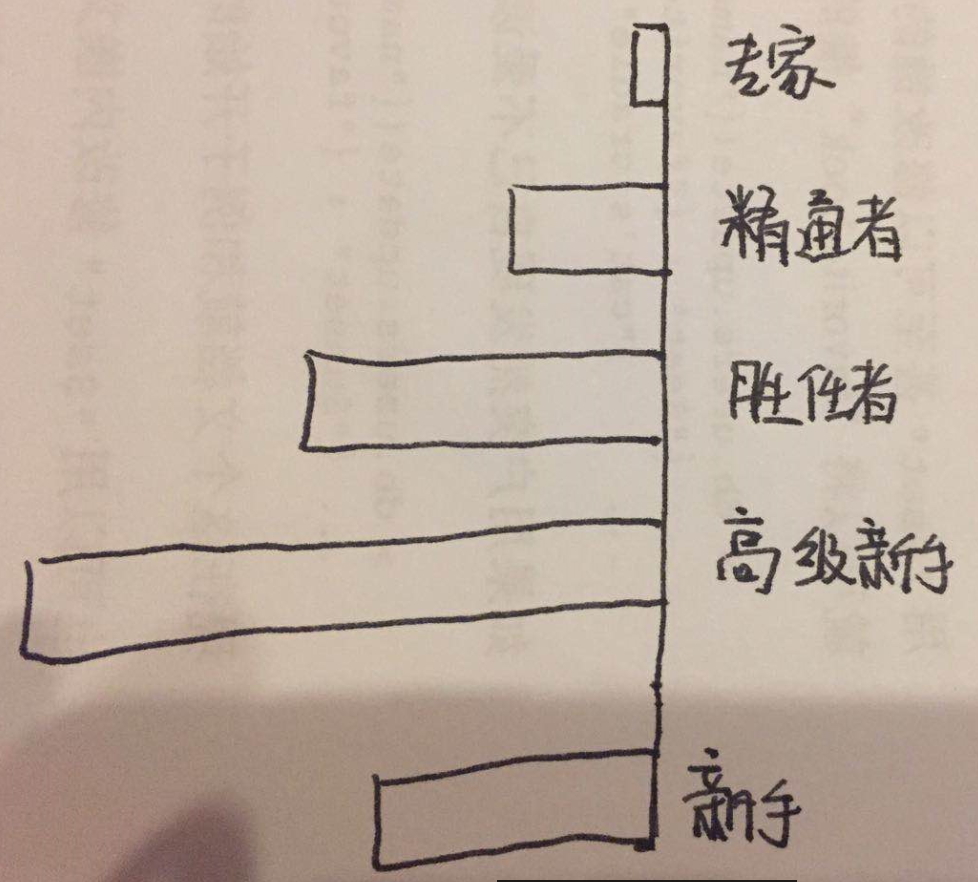 专家
精通者
胜任者
高级新手
新手